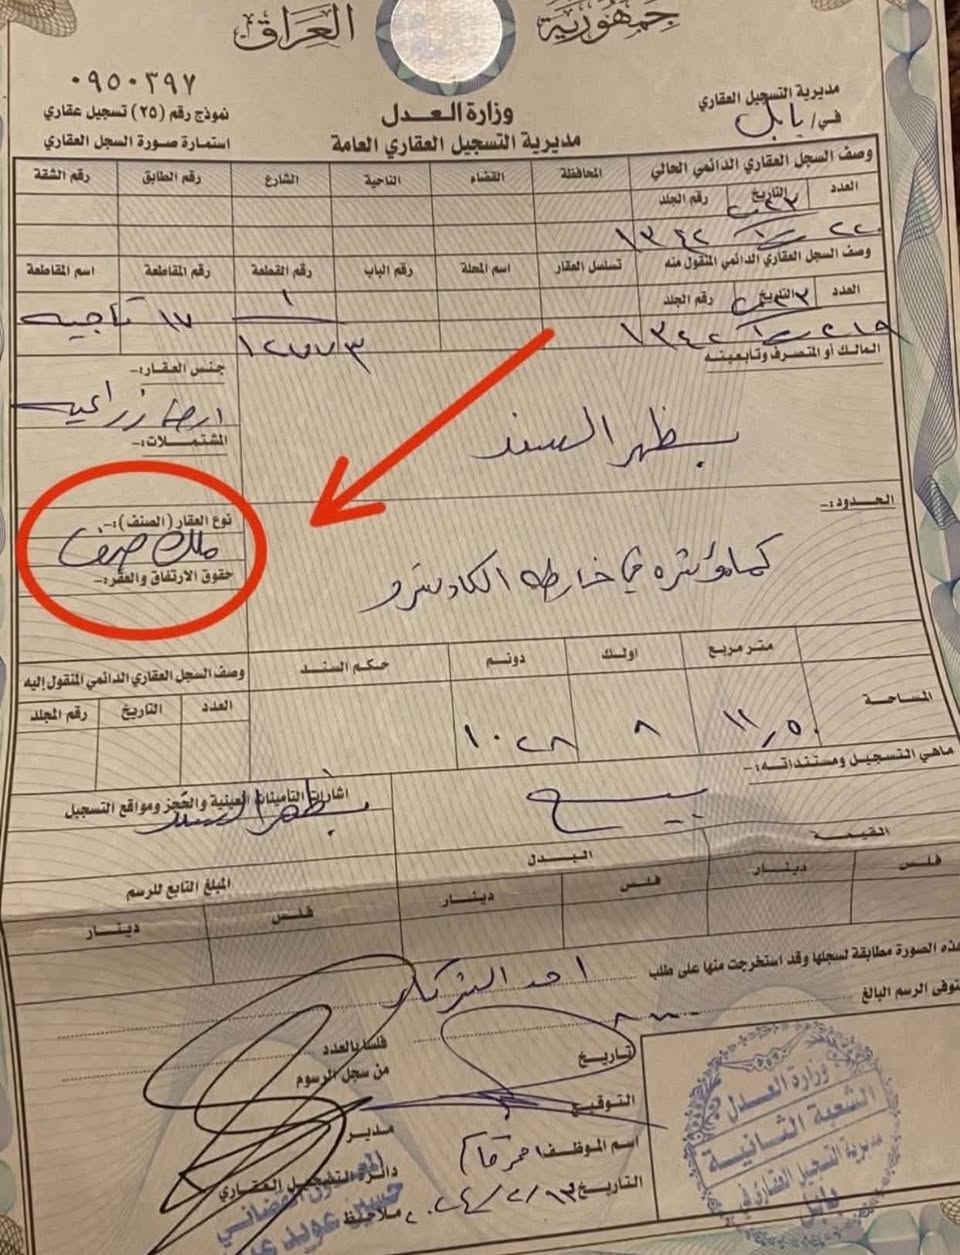 جمهورية العراق
٠٩٥٠٣٩٧
وزارة العدل
مديرية التسجيل العقاري
نموذج رقم (٢٥) تسجيل عقاري
مديرية التسجيل العقاري العامة
في/ بابل
استمارة صورة السجل العقاري
وصف السجل العقاري الدائمي الحالي
المحافظة القضاء الناحية الشارع رقم الطابق رقم الشقة
العدد التاريخ رقم الجلد
١٣٤٢
وصف السجل العقاري الدائمي المنقول منه
تسلسل العقار اسم المحلة رقم الباب رقم القطعة رقم المقاطعة اسم المقاطعة
العدد التاريخ رقم الجلد
١
١٧ تاجيه
المالك أو المتصرف وتابعيته
بظهر السند
جنس العقار:-
ارض زراعيه
المشتملات:-
نوع العقار (الصنف):-
ملك صرف
حقوق الارتفاق والعقر:-
الحدود:-
كما مؤشره في خارطه الكادسترو
متر مربع اولك دونم حكم السند
وصف السجل العقاري الدائمي المنقول إليه
المساحة
٨
العدد التاريخ رقم المجلد
ماهي التسجيل ومستنداته:-
بيع
اشارات التامينات العينية والحجز ومواقع التسجيل
بظهر السند
القيمة
البدل
المبلغ التابع للرسم
فلس دينار فلس دينار فلس دينار
هذه الصورة مطابقة لسجلها وقد استخرجت منها على طلب
توفى الرسم البالغ
فلسا بالعدد
تاريخ
من سجل الرسوم
التوقيع
مدير
اسم الموظف
دائرة التسجيل العقاري
التاريخ
ملاحظ
وزارة العدل
الشعبة الثانية
مديرية التسجيل العقاري في
بابل